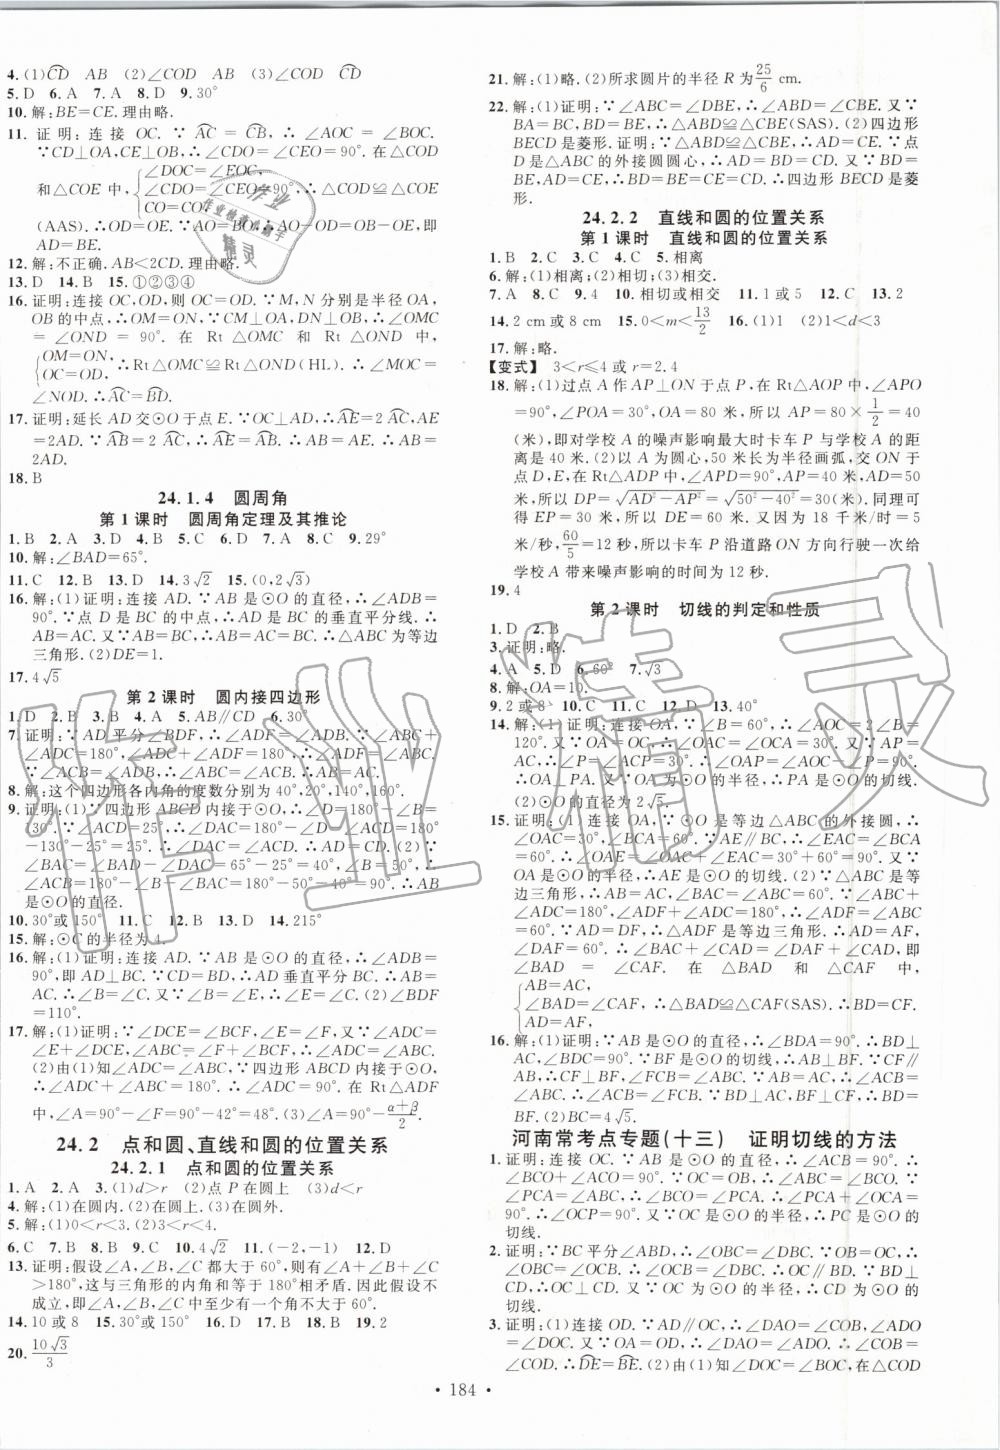 4.(1)C͡D　AB　(2)∠COD　AB　(3)∠COD　C͡D
5.D　6.A　7.A　8.D　9.30°
10.解:BE=CE.理由略.
11.证明:连接OC.∵A͡C=C͡B,∴∠AOC=∠BOC.
∵CD⊥OA,CE⊥OB,∴∠CDO=∠CEO=90°.在△COD
和△COE中,{∠DOC=∠EOC,
∠CDO=∠CEO=90°,∴△COD≌△COE
CO=CO.
(AAS).∴OD=OE.∵AO=BO,∴OA-OD=OB-OE,即
AD=BE.
12.解:不正确.AB<2CD.理由略.
13.D　14.B　15.①②③④
16.证明:连接OC,OD,则OC=OD.∵M,N分别是半径OA,
OB的中点,∴OM=ON.∵CM⊥OA,DN⊥OB,∴∠OMC
=∠OND=90°.在Rt△OMC和Rt△OND中,
{OM=ON,
OC=OD.∴Rt△OMC≌Rt△OND(HL).∴∠MOC=
∠NOD.∴A͡C=B͡D.
17.证明:延长AD交⊙O于点E.∵OC⊥AD,∴A͡E=2A͡C,AE
=2AD.∵A͡B=2A͡C,∴A͡E=A͡B.∴AE=AB.∴AB=
2AD.
18.B
24.1.4　圆周角
第1课时　圆周角定理及其推论
1.B　2.D　3.D　4.B　5.C　6.B　7.A　8.A　9.29°
10.解:∠BAD=65°.
11.C　12.B　13.D　14.3√2　15.(0,2√3)
16.解:(1)证明:连接AD.∵AB是⊙O的直径,∴∠ADB=
90°.∵点D是BC的中点,∴AD是BC的垂直平分线.∴
AB=AC.又∵AB=BC,∴AB=BC=AC.∴△ABC为等边
三角形.(2)DE=1.
17.4√5
第2课时　圆内接四边形
1.D　2.B　3.B　4.A　5.AB∥CD　6.30°
7.证明:∵AD平分∠BDF,∴∠ADF=∠ADB.∵∠ABC+
∠ADC=180°,∠ADC+∠ADF=180°,∴∠ADF=∠ABC.
∵∠ACB=∠ADB,∴∠ABC=∠ACB.∴AB=AC.
8.解:这个四边形各内角的度数分别为40°,20°,140°,160°.
9.证明:(1)∵四边形ABCD内接于⊙O,∴∠D=180°-∠B=
130°.∵∠ACD=25°,∴∠DAC=180°-∠D-∠ACD=180°
-130°-25°=25°.∴∠DAC=∠ACD.∴AD=CD.(2)∵
∠BAC=∠BAD-∠DAC=65°-25°=40°,∠B=50°,∴
∠ACB=180°-∠B-∠BAC=180°-50°-40°=90°.∴AB
是⊙O的直径.
10.30°或150°　11.C　12.B　13.D　14.215°
15.解:⊙C的半径为4.
16.解:(1)证明:连接AD.∵AB是⊙O的直径,∴∠ADB=
90°,即AD⊥BC.∵CD=BD,∴AD垂直平分BC.∴AB=
AC.∴∠B=∠C.又∵∠B=∠E,∴∠E=∠C.(2)∠BDF
=110°.
17.解:(1)证明:∵∠DCE=∠BCF,∠E=∠F,又∵∠ADC=
∠E+∠DCE,∠ABC=∠F+∠BCF,∴∠ADC=∠ABC.
(2)由(1)知∠ADC=∠ABC,∵四边形ABCD内接于⊙O,
∴∠ADC+∠ABC=180°.∴∠ADC=90°.在Rt△ADF
中,∠A=90°-∠F=90°-42°=48°.(3)∠A=90°-(α+β)/2.
24.2　点和圆、直线和圆的位置关系
24.2.1　点和圆的位置关系
1.A　2.A　3.(1)d>r　(2)点P在圆上　(3)d<r
4.解:(1)在圆内.(2)在圆上.(3)在圆外.
5.解:(1)0<r<3.(2)3<r<4.
6.C　7.B　8.B　9.C　10.4√2　11.(-2,-1)　12.D
13.证明:假设∠A,∠B,∠C都大于60°,则有∠A+∠B+∠C
>180°,这与三角形的内角和等于180°相矛盾.因此假设不
成立,即∠A,∠B,∠C中至少有一个角不大于60°.
14.10或8　15.30°或150°　16.D　17.B　18.B　19.2
20.10√3/3
21.解:(1)略.(2)所求圆片的半径R为25/6 cm.
22.解:(1)证明:∵∠ABC=∠DBE,∴∠ABD=∠CBE.又∵
BA=BC,BD=BE,∴△ABD≌△CBE(SAS).(2)四边形
BECD是菱形.证明:∵△ABD≌△CBE,∴AD=CE.∵点
D是△ABC的外接圆圆心,∴DA=DB=DC.又∵BD=
BE,∴BD=BE=CE=CD.∴四边形BECD是菱
形.
24.2.2　直线和圆的位置关系
第1课时　直线和圆的位置关系
1.B　2.C　3.C　4.C　5.相离
6.解:(1)相离;(2)相切;(3)相交.
7.A　8.C　9.4　10.相切或相交　11.1或5　12.C　13.2
14.2 cm或8 cm　15.0<m<13/2　16.(1)1　(2)1<d<3
17.解:略.
【变式】　3<r≤4或r=2.4
18.解:(1)过点A作AP⊥ON于点P,在Rt△AOP中,∠APO
=90°,∠POA=30°,OA=80米,所以AP=80×1/2=40
(米),即对学校A的噪声影响最大时卡车P与学校A的距
离是40米.(2)以A为圆心,50米长为半径画弧,交ON于
点D,E,在Rt△ADP中,∠APD=90°,AP=40米,AD=50
米,所以DP=√AD²-AP²=√50²-40²=30(米).同理可
得EP=30米,所以DE=60米.又因为18千米/时=5
米/秒,60/5=12(秒),所以卡车P沿道路ON方向行驶一次给
学校A带来噪声影响的时间为12秒.
19.4
第2课时　切线的判定和性质
1.D　2.B
3.证明:略.
4.A　5.D　6.60°　7.√3
8.解:OA=10.
9.2或8　10.C　11.C　12.D　13.40°
14.解:(1)证明:连接OA.∵∠B=60°,∴∠AOC=2∠B=
120°.又∵OA=OC,∴∠OAC=∠OCA=30°.又∵AP=
AC,∴∠P=∠ACP=30°.∴∠OAP=∠AOC-∠P=90°.
∴OA⊥PA.又∵OA是⊙O的半径,∴PA是⊙O的切线.
(2)⊙O的直径为2√5.
15.证明:(1)连接OA,∵⊙O是等边三角形△ABC的外接圆,∴
∠OAC=30°,∠BCA=60°.∵AE∥BC,∴∠EAC=∠BCA
=60°.∴∠OAE=∠OAC+∠EAC=30°+60°=90°.又∵
OA是⊙O的半径,∴AE是⊙O的切线.(2)∵△ABC是等
边三角形,∴AB=AC,∠BAC=∠ABC=60°.∵∠ABC+
∠ADC=180°,∠ADF+∠ADC=180°,∴∠ADF=∠ABC=
60°.∵AD=DF,∴△ADF是等边三角形.∴AD=AF,
∠DAF=60°.∴∠BAC+∠CAD=∠DAF+∠CAD,即
∠BAD=∠CAF.在△BAD和△CAF中,
{AB=AC,
∠BAD=∠CAF,∴△BAD≌△CAF(SAS).∴BD=CF.
AD=AF,
16.解:(1)证明:∵AB是⊙O的直径,∴∠BDA=90°.∴BD⊥
AC,∠BDC=90°.∵BF是⊙O的切线,∴AB⊥BF.∵CF∥
AB,∴CF⊥BF,∠FCB=∠ABC.∵AB=AC,∴∠ACB=
∠ABC.∴∠ACB=∠FCB.∵BD⊥AC,BF⊥CF,∴BD=
BF.(2)BC=4√5.
河南常考点专题(十三)　证明切线的方法
1.证明:连接OC.∵AB是⊙O的直径,∴∠ACB=90°.∴
∠BCO+∠ACO=90°.∵OC=OB,∴∠ABC=∠BCO.∵
∠PCA=∠ABC,∴∠BCO=∠PCA.∴∠PCA+∠OCA=
90°.∴∠PCO=90°.又∵OC是⊙O的半径,∴PC是⊙O的
切线.
2.证明:∵BC平分∠ABD,∴∠OBC=∠DBC.∵OB=OC,∴
∠OBC=∠OCB.∴∠DBC=∠OCB.∴OC∥BD.∵BD⊥
CD,∴OC⊥CD.又∵OC为⊙O的半径,∴CD为⊙O的
切线.
3.证明:(1)连接OD.∵AD∥OC,∴∠DAO=∠COB,∠ADO
=∠DOC.又∵OA=OD,∴∠DAO=∠ADO.∴∠COB=
∠COD.∴D͡E=B͡E.(2)由(1)知∠DOC=∠BOC,在△COD
• 184 •
作业精灵